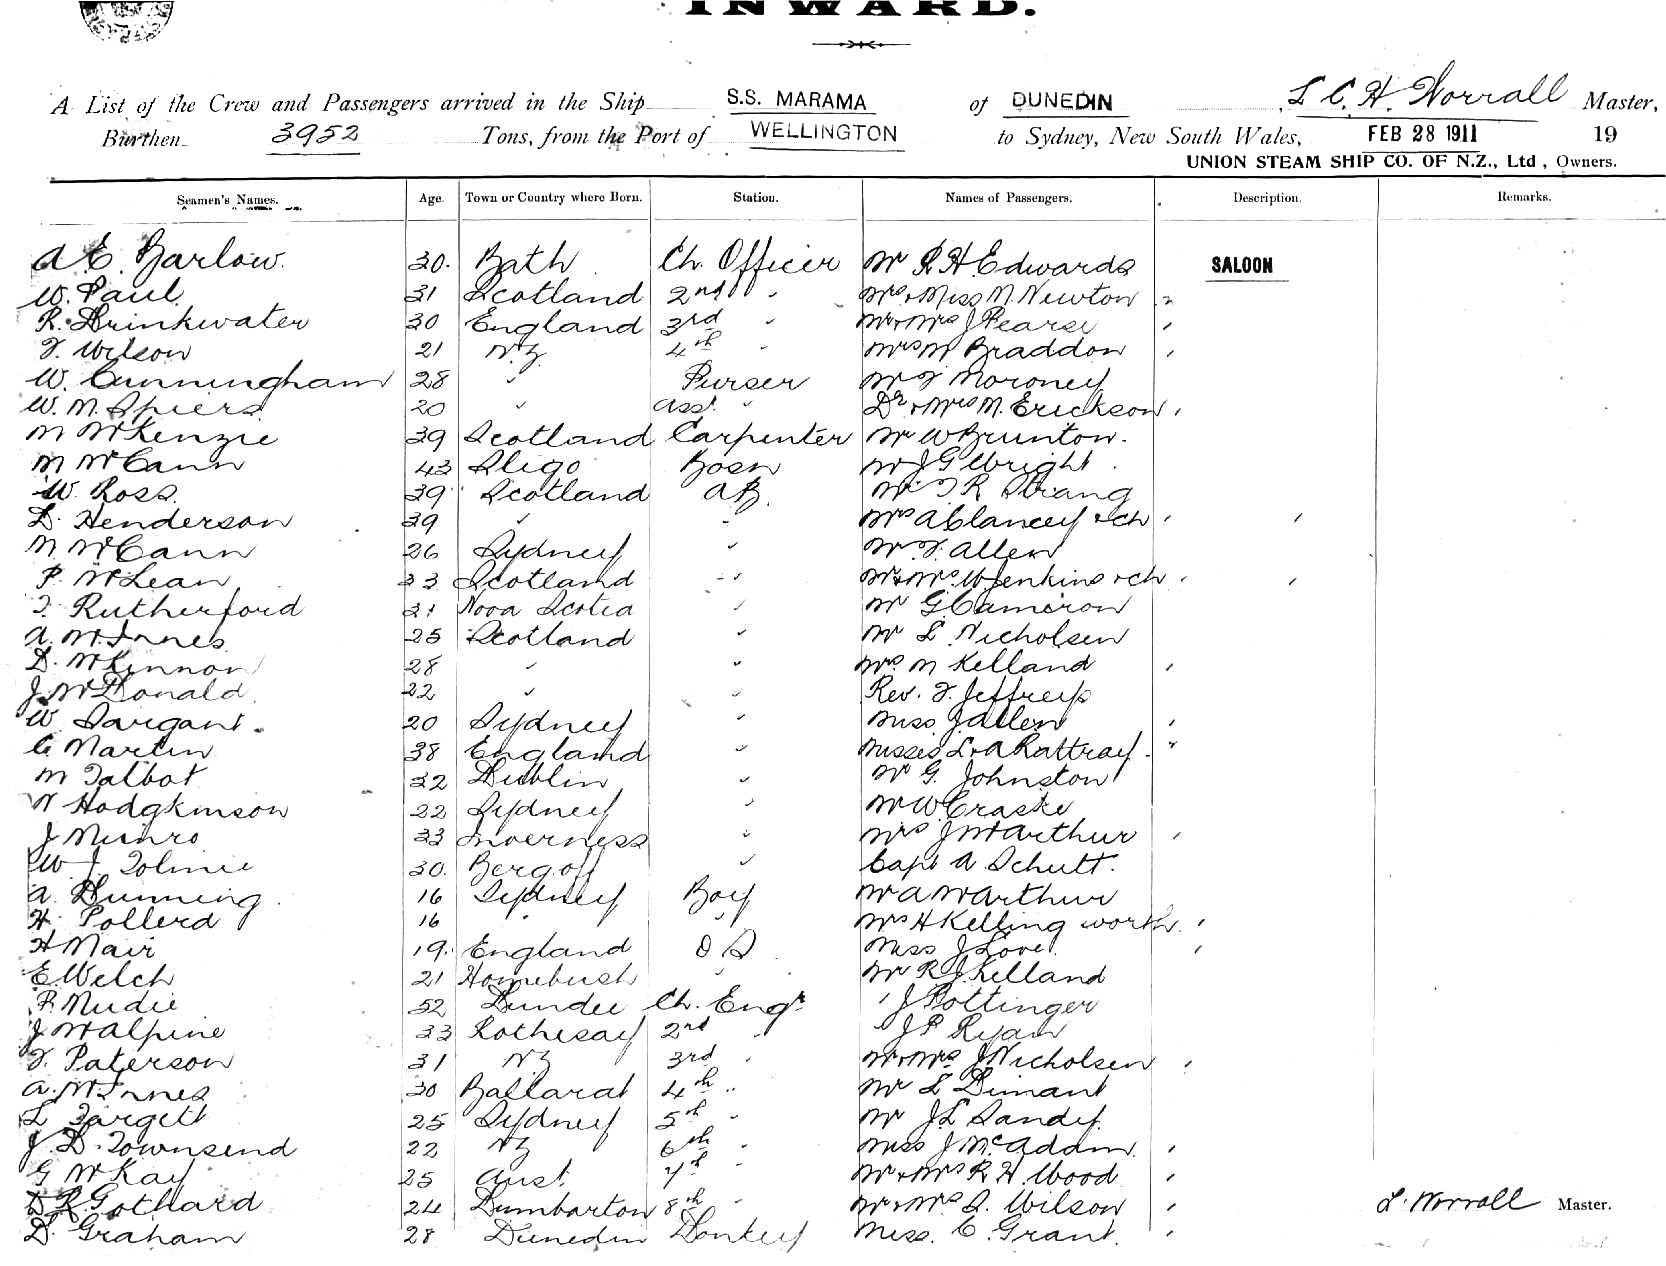 INWARD.
A List of the Crew and Passengers arrived in the Ship S.S. MARAMA of DUNEDIN, L C. H. Worrall Master,
Burthen 3952 Tons, from the Port of WELLINGTON to Sydney, New South Wales, FEB 28 1911 19
UNION STEAM SHIP CO. OF N.Z., Ltd, Owners.
Seamen's Names. Age. Town or Country where Born. Station. Names of Passengers. Description. Remarks.
A E. Barlow. 30. Bath Ch. Officer Mr R H Edwards SALOON
W. Paul. 31 Scotland 2nd " Mrs & Miss M. Newton "
R. Drinkwater 30 England 3rd " Mr & Mrs J Pearse "
T. Wilson 21 N.Z. 4th " Mrs M Braddon "
W. Cunningham 28 " Purser Mr T Moroney
W. M. Spiers 20 " Asst. " Dr & Mrs M. Erickson "
M McKenzie 39 Scotland Carpenter Mr W Brunton.
M McCann 43 Sligo Bosn Mr J G Wright.
W. Ross. 39 Scotland A.B. Mr T R Strang
D. Henderson 39 " " Mrs A Clancey & ch " "
M McCann 26 Sydney " Mr T. Allen
P. McLean 33 Scotland " Mr & Mrs W Jenkins & ch " "
T Rutherford 31 Nova Scotia " Mr G Cameron
A. McInnes 25 Scotland " Mr L Nicholsen
D. McKinnon 28 " " Mrs M Kelland "
J. McDonald 22 " " Rev. T. Jeffreys
W Sargant. 20 Sydney " Miss J. Allen "
C Martin 38 England " Misses L & A Rattray. "
M Talbot 32 Dublin " Mr G. Johnston
Hodgkinson 22 Sydney " Mr W Craske
J Munro 33 Inverness " Mrs J McArthur "
W J. Tolmie 30. " Capt A Schutt.
A. Dunning 16 Sydney Boy Mr A McArthur
H. Pollerd 16 " " Mrs H Kellingworth. "
H Mair 19. England O S Miss J Love. "
E Welch 21 Homebush " Mr R J Kelland
P. Mudie 52 Dundee Ch. Engr " J Pottinger
J McAlpine 33 Rothesay 2nd " " J P Ryan
T. Paterson 31 NZ 3rd " Mr & Mrs J Nicholsen "
A. McInnes 30 Ballarat 4th " Mr L Dimant
L Targett 25 Sydney 5th " Mr J L Sandy.
J. D. Townsend 22 NZ 6th " Miss J McAddam. "
G McKay 25 Aust. 7th " Mr & Mrs R H. Wood "
D R Gothard 24 Dumbarton 8th " Mr & Mrs A. Wilson " L. Worrall Master.
D. Graham 28 Dunedin Donkey Miss. C. Grant. "